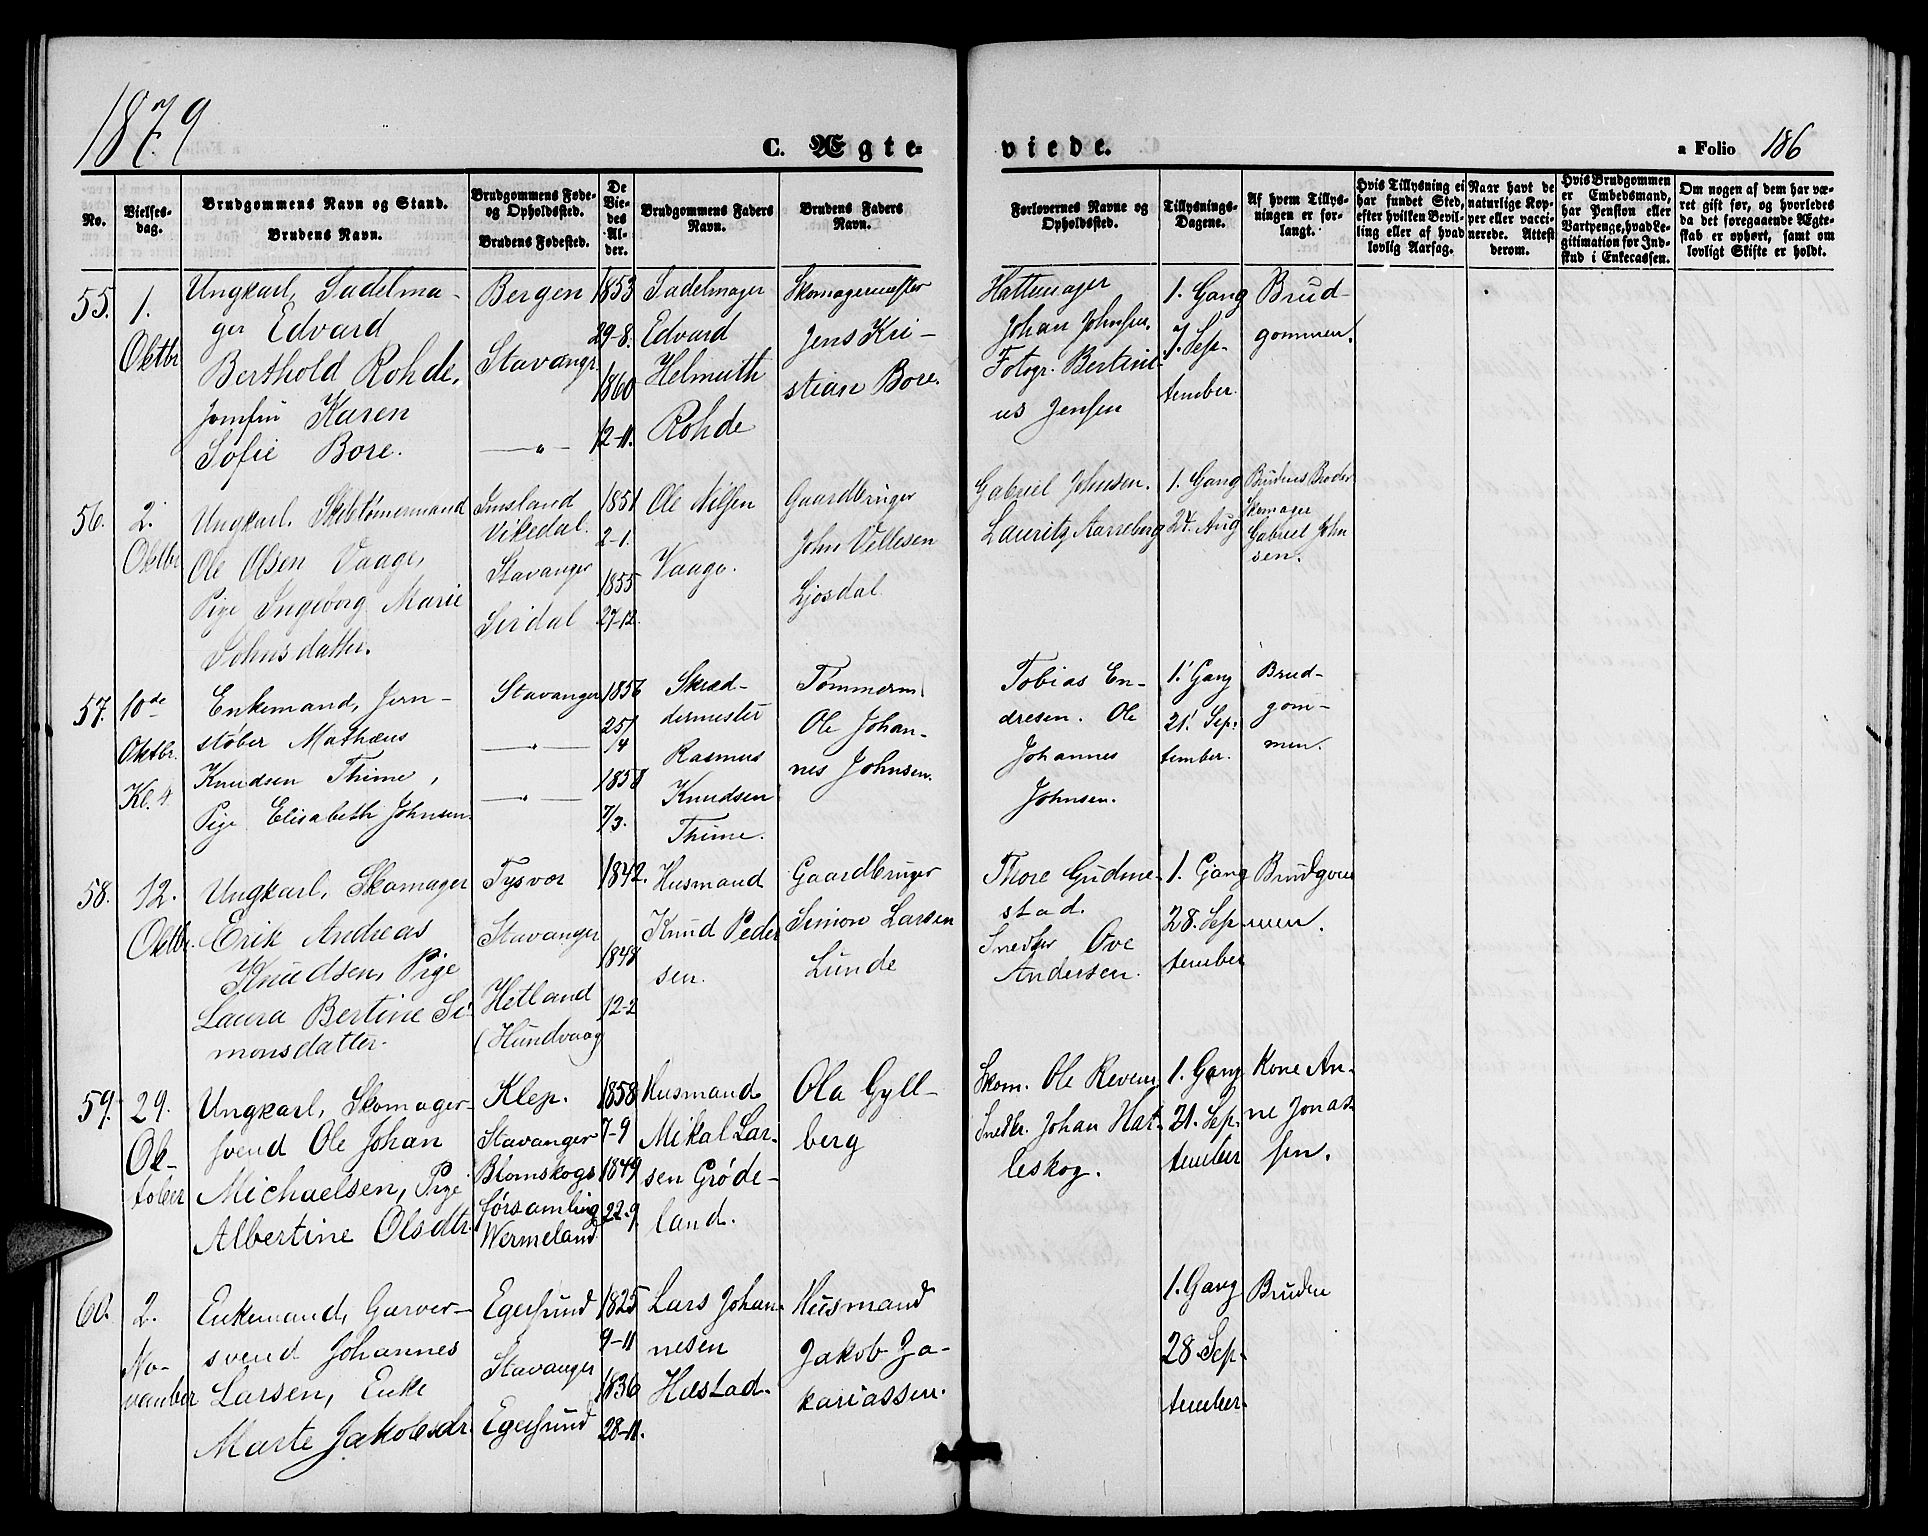 1879
C. Ægte=
viede.
a Folio 186
No.
Vielses-
dag.
Brudgommens Navn og Stand.
Brudens Navn.
Brudgommens Føde-
og Opholdsted.
Brudens Fødested.
De
Vie-
des
Al-
der.
Brudgommens Faders
Navn.
Brudens Faders
Navn.
Forlovernes Navne og
Opholdssted.
Tillysnings-
Dagene.
Af hvem Tillys-
ningen er for-
langt.
Hvis Tillysning ei
har fundet Sted,
efter hvilken Bevil-
ling eller af hvad
lovlig Aarsag.
Naar havt de
naturlige Kop-
per eller vacci-
nerede. Attest
derom.
Hvis Brudgommen
er Embedsmand,
har Pension eller
Vartpenge, hvad Le-
gitimation for Ind-
skud i Enkecassen.
Om nogen af dem har væ-
ret gift før, og hvorledes
da det foregaaende Ægte-
skab er ophørt, samt om
lovligt Skifte er holdt.
55.
1.
Oktbr
Ungkarl, Sadelma-
ger Edvard
Berthold Rohde,
Jomfru Karen
Sofie Bore.
Bergen
Stavangr.
— „ —
1853
29-8.
1860
12-11.
Sadelmager
Edvard
Helmuth
Rohde
Skomagermester
Jens Kri-
stian Bore.
Hattemager
Johan Johnsen,
Fotogr. Bertini-
us Jensen
1. Gang
7. Sep-
tember.
Brud-
gommen.
56.
2.
Oktbr
Ungkarl, Skibtømermand
Ole Olsen Vaage,
Pige Ingeborg Marie
Johnsdatter.
Imsland
Vikedal.
Stavanger
Sirdal
1851
2-1.
1855
27-12.
Ole Nilsen
Vaage.
Gaardbruger
John Vellesen
Ljosdal
Gabriel Johnsen.
Lauritz Aarreberg
1. Gang
24. Aug
Brudens Broder
Skomager
Gabriel John
sen.
57.
10de
Oktbr.
Kl. 4.
Enkemand, Jern-
støber Mathæus
Knudsen Thime,
Pige Elisabeth Johnsen.
Stavanger
— „ —
— „ —
1856
25/
/4
1858
7/3.
Skræd-
dermester
Rasmus
Knudsen
Thime.
Tømmerm.
Ole Johan-
nes Johnsen.
Tobias En-
dresen. Ole
Johannes
Johnsen.
1' Gang
21' Sep-
tember.
Brud-
gom-
men.
58.
12.
Oktbr.
Ungkarl, Skomager
Erik Andreas
Knudsen, Pige
Laura Bertine Si-
monsdatter.
Tysvær
Stavanger
Hetland
(Hundvaag
1842.
1848
12-2
Husmand
Knud Peder
sen.
Gaardbruger
Simon Larsen
Lunde
Thore Gudme-
stad.
Snedker Ove
Andersen.
1. Gang
28. Sep
tember
Brudgom
men.
59.
29.
Ok-
tober
Ungkarl, Skomager-
svend Ole Johan
Michaelsen, Pige
Albertine Olsdtr.
Klep.
Stavanger
Blomskogs
församling
Wermeland
1858
7-9
1849
22-9
Husmand
Mikal Lar-
sen Grøde-
land.
Ola Gyll-
berg
Skom. Ole Reven
Snedkr. Johan Hat-
leskog.
1. Gang
21. Sep-
tember
Kone An-
ne Jonas-
sen.
60.
2.
No-
vember
Enkemand, Garver-
svend Johannes
Larsen, Enke
Marte Jakobsdr.
Egersund
Stavanger
Egersund
1825
9-11
1836
28-11.
Lars Johan-
nesen
Hæstad.
Husmand
Jakob Za-
kariassen.
1. Gang
28. Sep-
tember.
Bruden